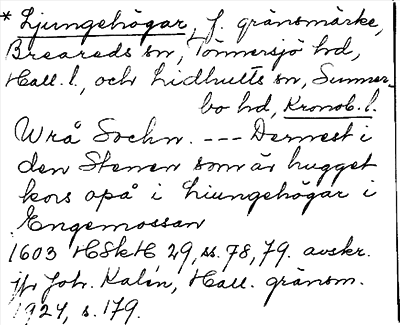 * Ljungehögar, f. gränsmärke,
Breareds sn, Tönnersjö hd,
Hall. l., och Lidhults sn, Sunner-
bo hd, Kronob. l.
Wrå Sochn. --- Dernest i
den Stenen som är hugget
kors opå i Liungehögar i
Engemossan
1603 HSkH 29, ss. 78, 79. avskr.
jfr Joh. Kalén, Hall. gränsm.
1924, s. 179.